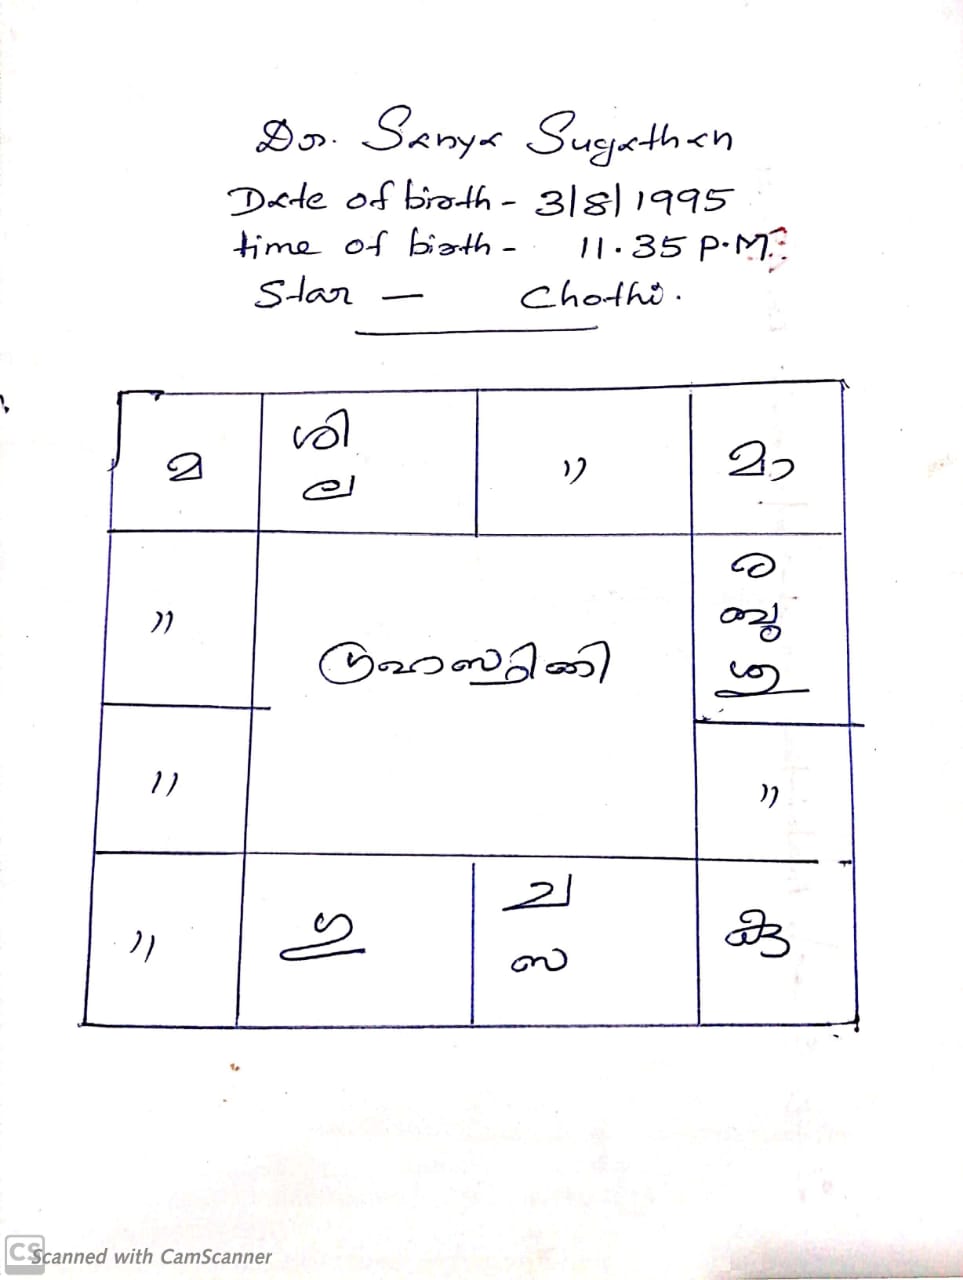 Dr. Sanya Sugathan
Date of birth - 3/8/1995
time of birth - 11.35 P.M.
Star — Chothi.
മ
ശി
ല
"
മാ
"
ര
ബു
ശു
ഗ്രഹസ്ഥിതി
"
"
"
ഗു
ച
സ
കു
CS Scanned with CamScanner